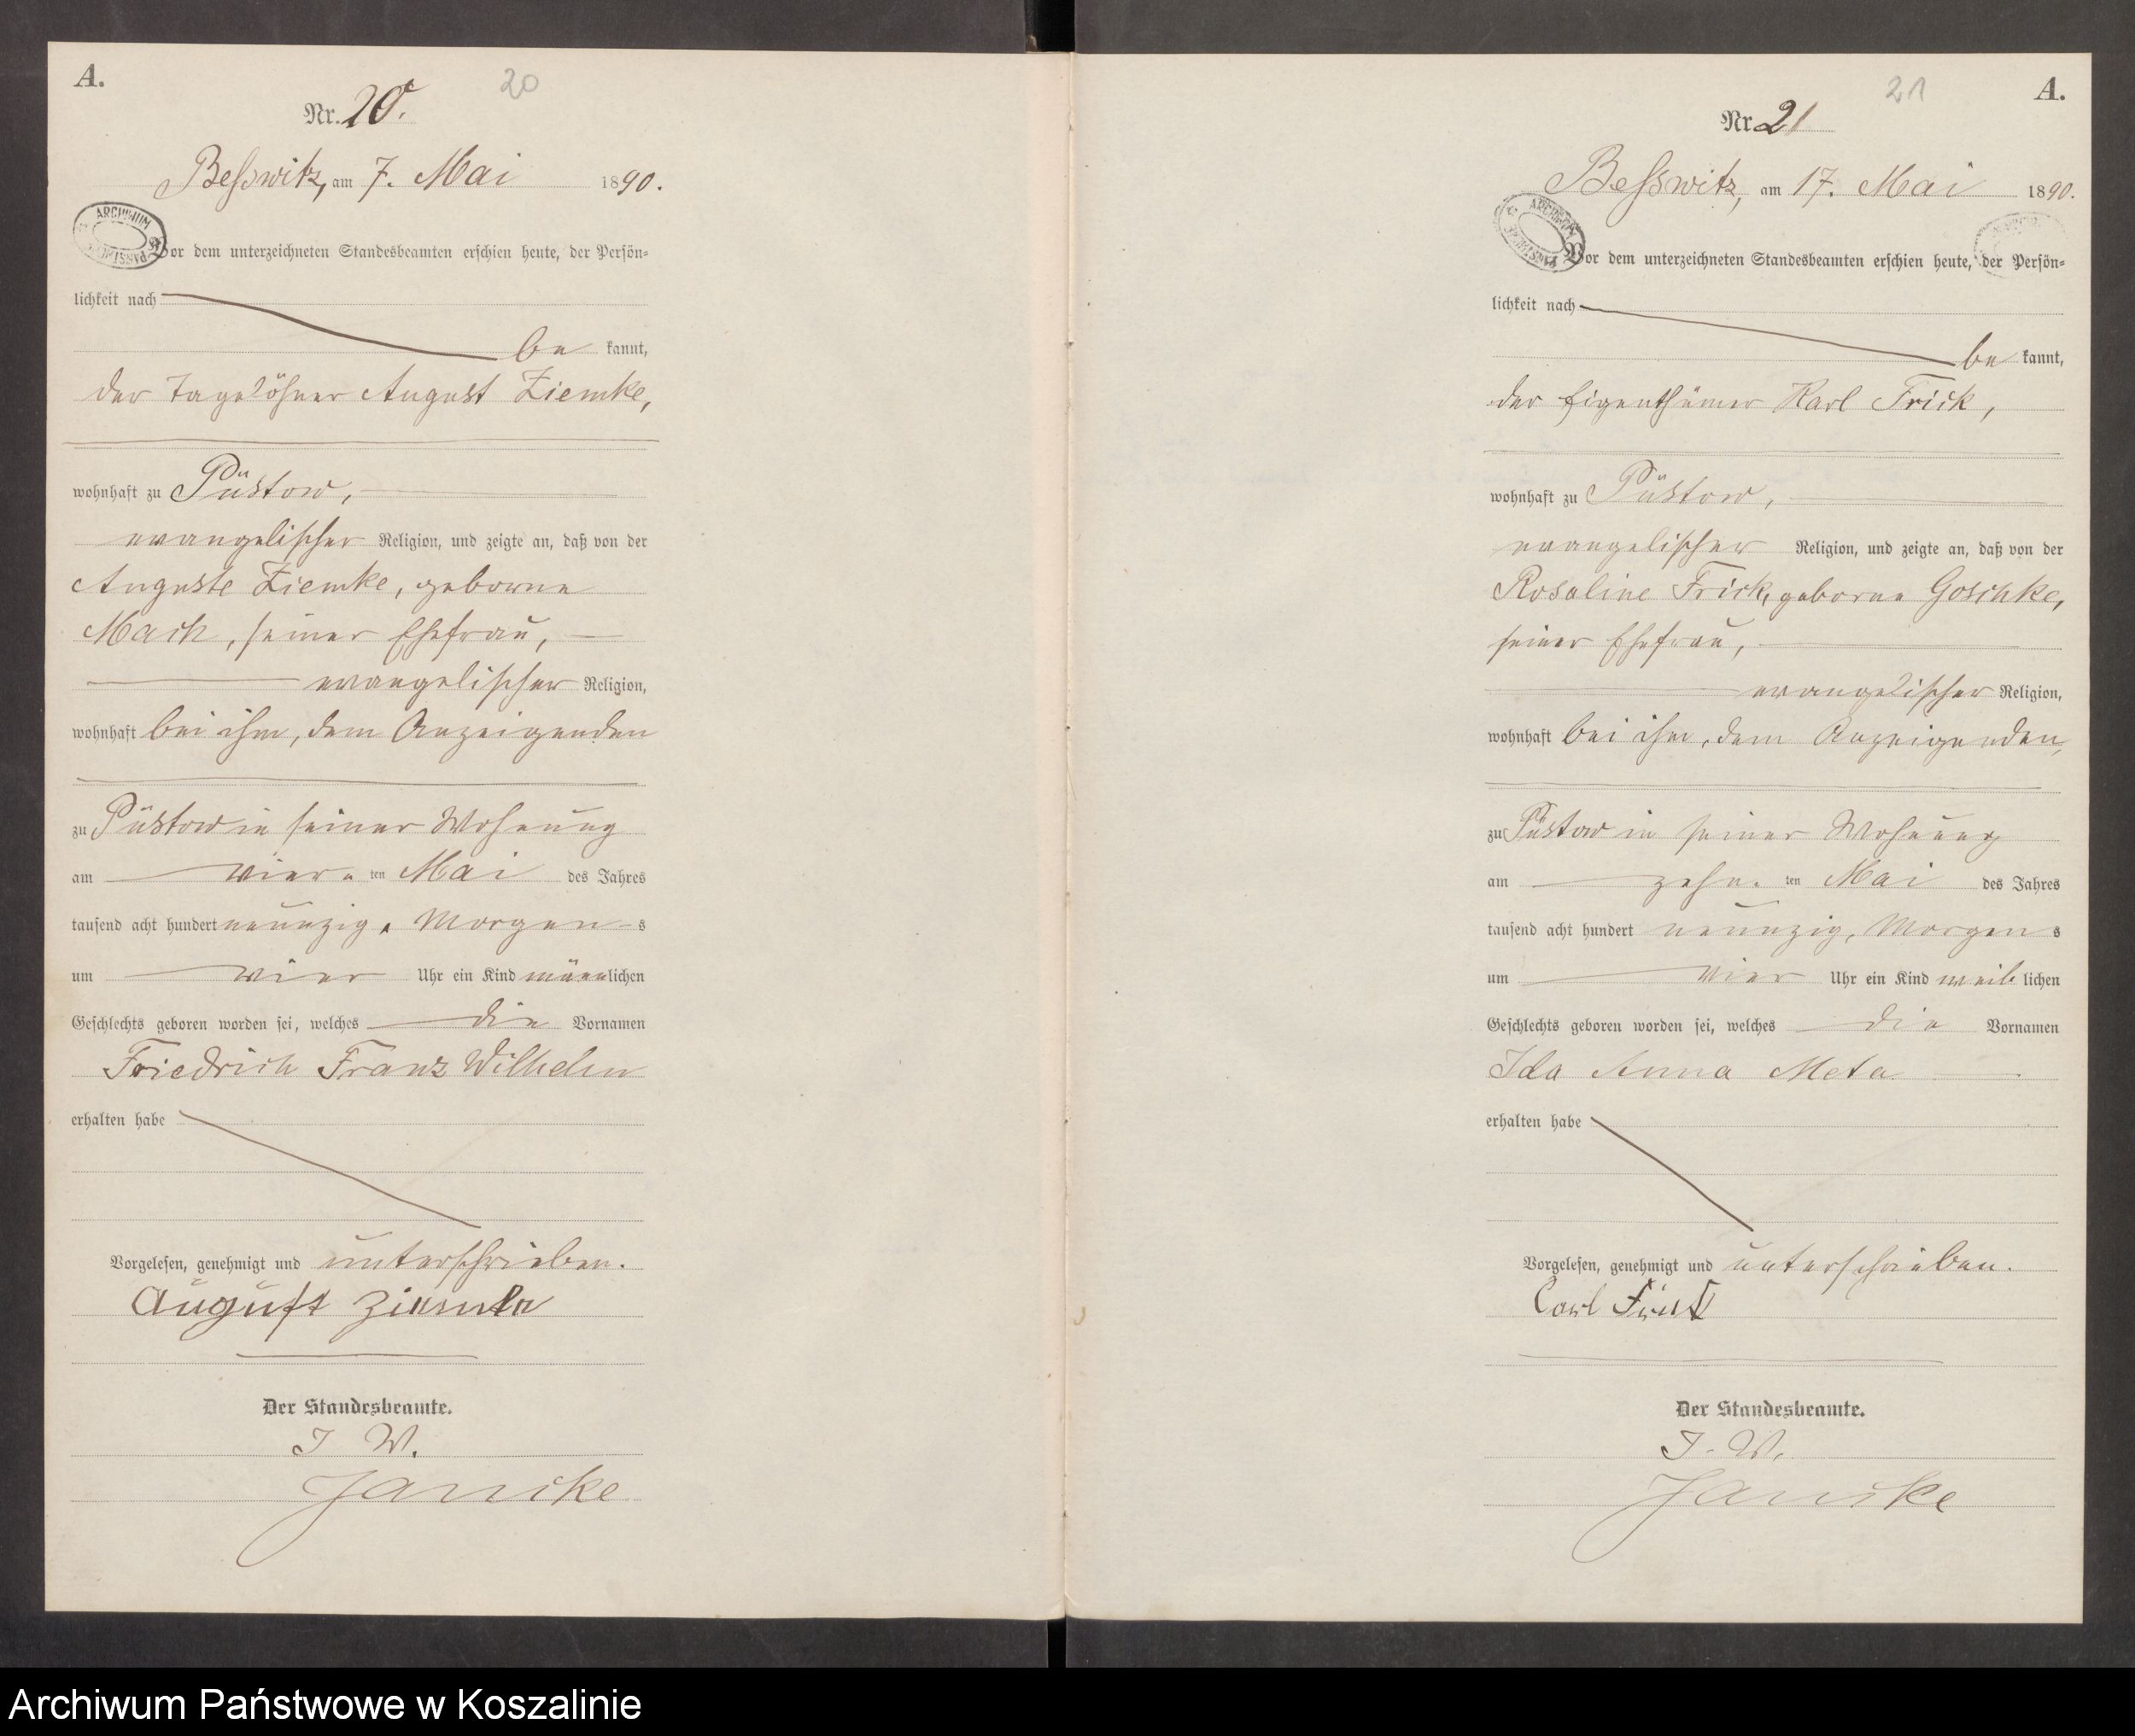 A.
20
Nr. 20.
Besswitz, am 7. Mai 1890.
ARCHIWUM
Vor dem unterzeichneten Standesbeamten erschien heute, der Persön-
lichkeit nach
be kannt,
der Tagelöhner August Ziemke,
wohnhaft zu Püstow,
evangelischer Religion, und zeigte an, daß von der
Auguste Ziemke, geborne
Mach, seiner Ehefrau,
evangelischer Religion,
wohnhaft bei ihm, dem Anzeigenden
zu Püstow in seiner Wohnung
am vier. ten Mai des Jahres
tausend acht hundert neunzig, Morgen s
um vier Uhr ein Kind männlichen
Geschlechts geboren worden sei, welches die Vornamen
Friedrich Franz Wilhelm
erhalten habe
Vorgelesen, genehmigt und unterschrieben.
August Ziemke
Der Standesbeamte.
J. W.
Jancke
21
A.
Nr 21
Besswitz, am 17. Mai 1890.
ARCHIWUM
Vor dem unterzeichneten Standesbeamten erschien heute, der Persön-
lichkeit nach
be kannt,
der Eigenthümer Karl Frick,
wohnhaft zu Püstow,
evangelischer Religion, und zeigte an, daß von der
Rosaline Frick, geborne Goschke,
seiner Ehefrau,
evangelischer Religion,
wohnhaft bei ihm, dem Anzeigenden,
zu Püstow in seiner Wohnung
am zehn. ten Mai des Jahres
tausend acht hundert neunzig, Morgen s
um vier Uhr ein Kind weib lichen
Geschlechts geboren worden sei, welches die Vornamen
Ida Anna Meta
erhalten habe
Vorgelesen, genehmigt und unterschrieben.
Carl Frick
Der Standesbeamte.
J. W.
Jancke
Archiwum Państwowe w Koszalinie